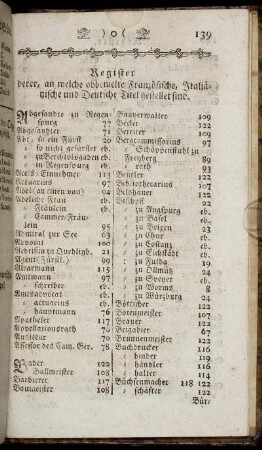 )o( 139
Register
derer, an welche obbemelte Französische, Italiä-
nische und Deutsche Titel gestellet sind.
Abgesandte zu Regen-
spurg 77
Abgesandter 71
Abt, so ein Fürst 20
so nicht gefürstet eb.
zu Berchtolsgaden eb.
in Regenspurg eb.
Accis-Einnehmer 115
Actuarius 97
Adel (an einen von) 94
Adeliche Frau eb.
Fräulein eb.
Cammer-Fräu-
lein 95
Admiral zur See 63
Advocat 100
Aebtissin zu Quedlinb. 21
Agent (Fürstl.) 99
Allarmann 115
Amtmann 97
schreiber eb.
Amtsadvocat eb.
actuarius eb.
hauptmann 76
Apotheker 117
Appellationsrath 70
Auditeur 70
Assessor des Cam. Ger. 78
Bader 122
Ballmeister 108
Barbierer 117
Baumeister 108
Bauverwalter 109
Becker 122
Bereiter 109
Bergcommissarius 97
Schöppenstuhl zu
Freyberg 89
rath 93
Beutler 122
Bibliothecarius 107
Bildhauer 122
Bischoff 22
zu Augspurg eb.
zu Basel eb.
zu Brixen 23
zu Chur eb.
zu Costanz eb.
zu Eichstädt eb.
zu Fulda 19
zu Ollmütz 24
zu Speyer eb.
zu Worms 8
zu Würzburg 24
Böttcher 122
Botenmeister 107
Brauer 122
Brigadier 67
Brunnenmeister 122
Buchdrucker 116
binder 119
händler 116
halter 114
Büchsenmacher 118 122
schäfter 122
Bür-